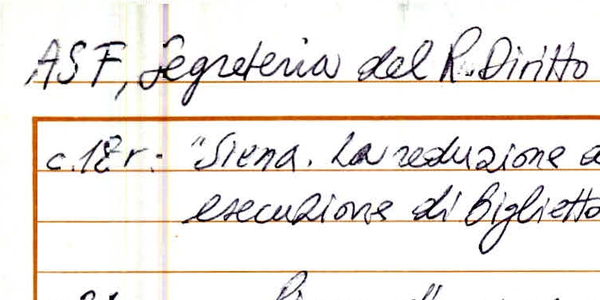 ASF, Segreteria del R. Diritto
c. 18r: "Siena. La reduzione
esecuzione di biglietto